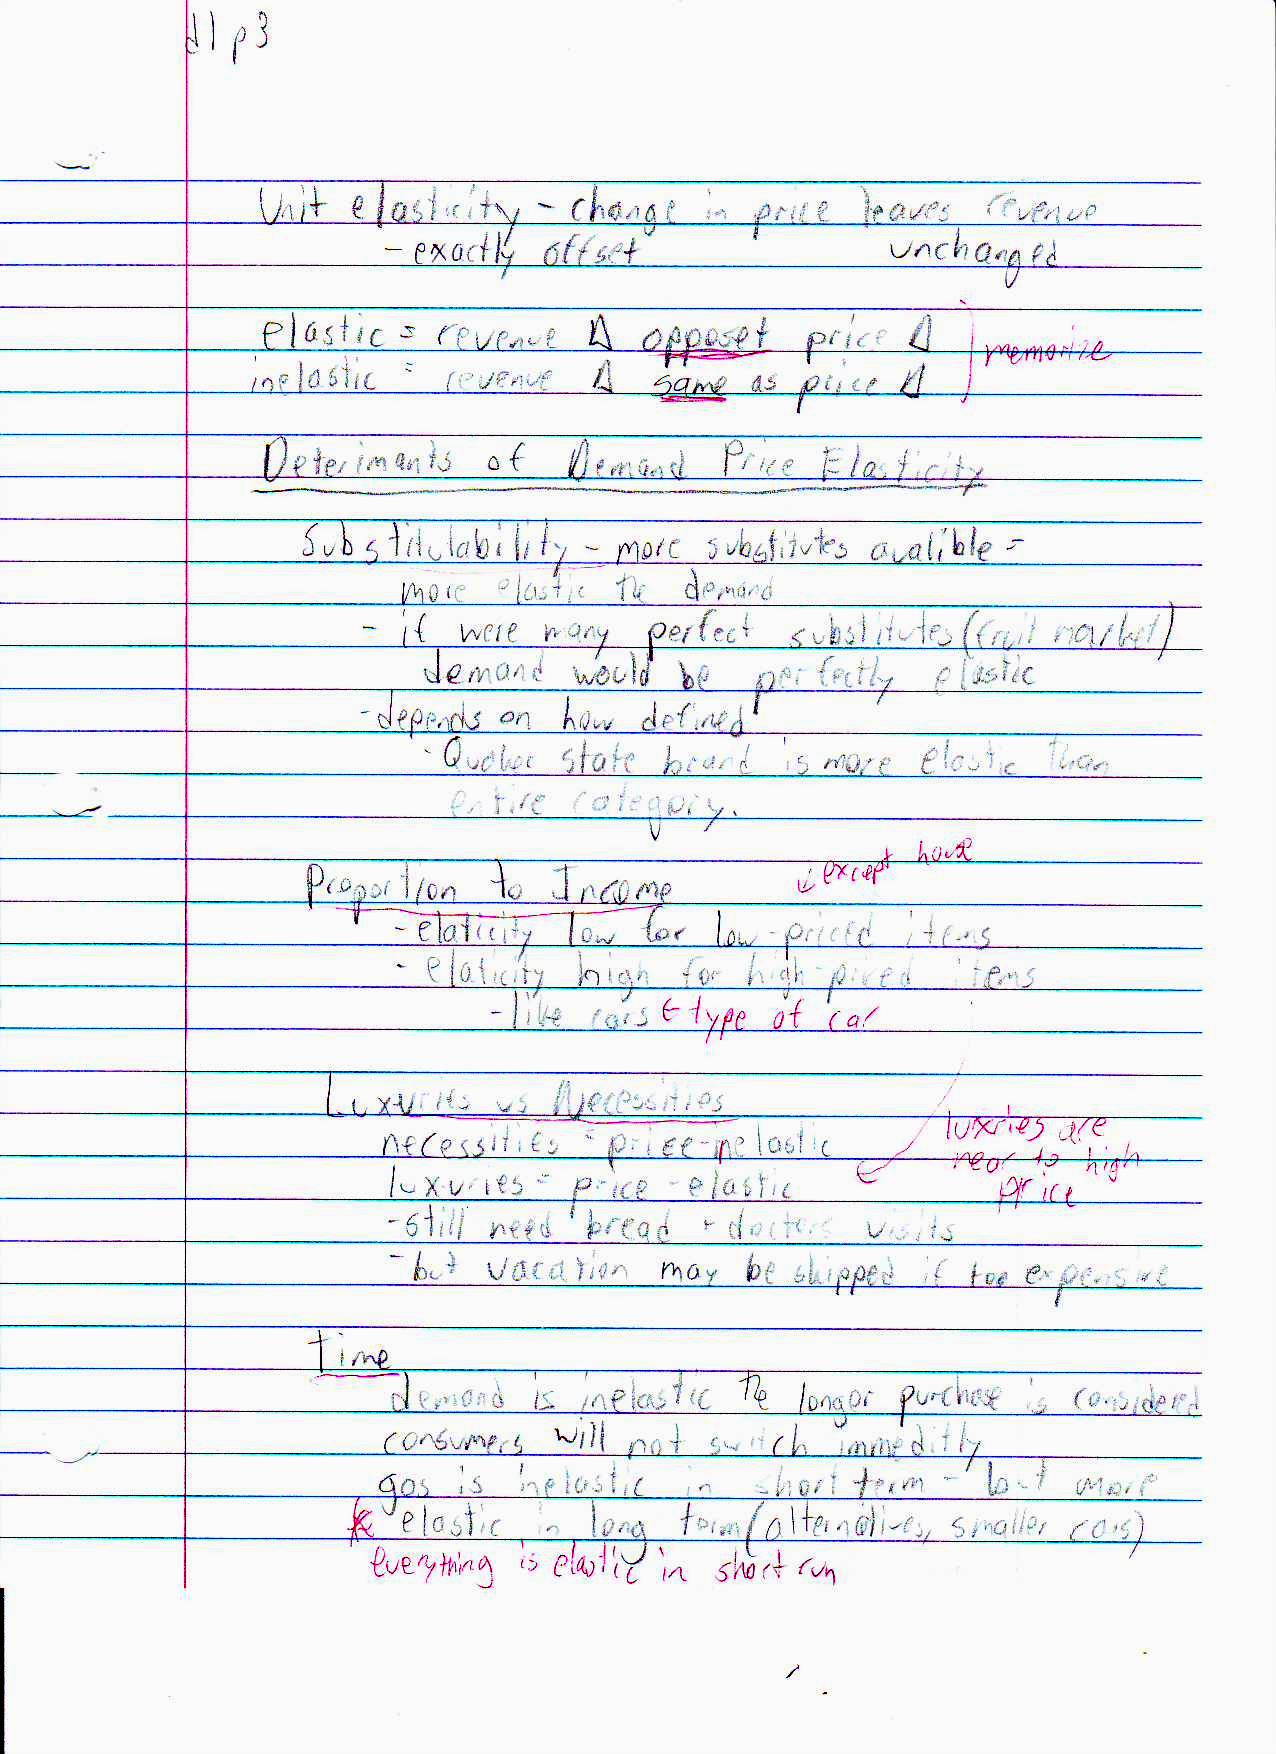 d1 p3
Unit elasticity - change in price leaves revenue
- exactly offset unchanged
elastic = revenue Δ opposet price Δ
memorize
inelastic = revenue Δ same as price Δ
Deterimants of Demand Price Elasticity
Substitutability - more substitutes avalible =
more elastic the demand
- if were many perfect substitutes (fruit market)
demand would be perfectly elastic
- depends on how defined
· Quaker state brand is more elastic than
entire category.
↓ except house
Proportion to Income
- elaticity low for low-priced items
- elaticity high for high-piced items
- like cars ← type of car
Luxuries vs Necessities
luxries are
necessities = price-inelastic
near to high
luxuries = price-elastic
price
- still need bread + doctors visits
- but vacation may be shipped if too expensive
Time
demand is inelastic the longer purchase is considered
consumers will not switch immeditly
gas is inelastic in short term - but more
* elastic in long term (alternatives, smaller cars)
everything is elastic in short run